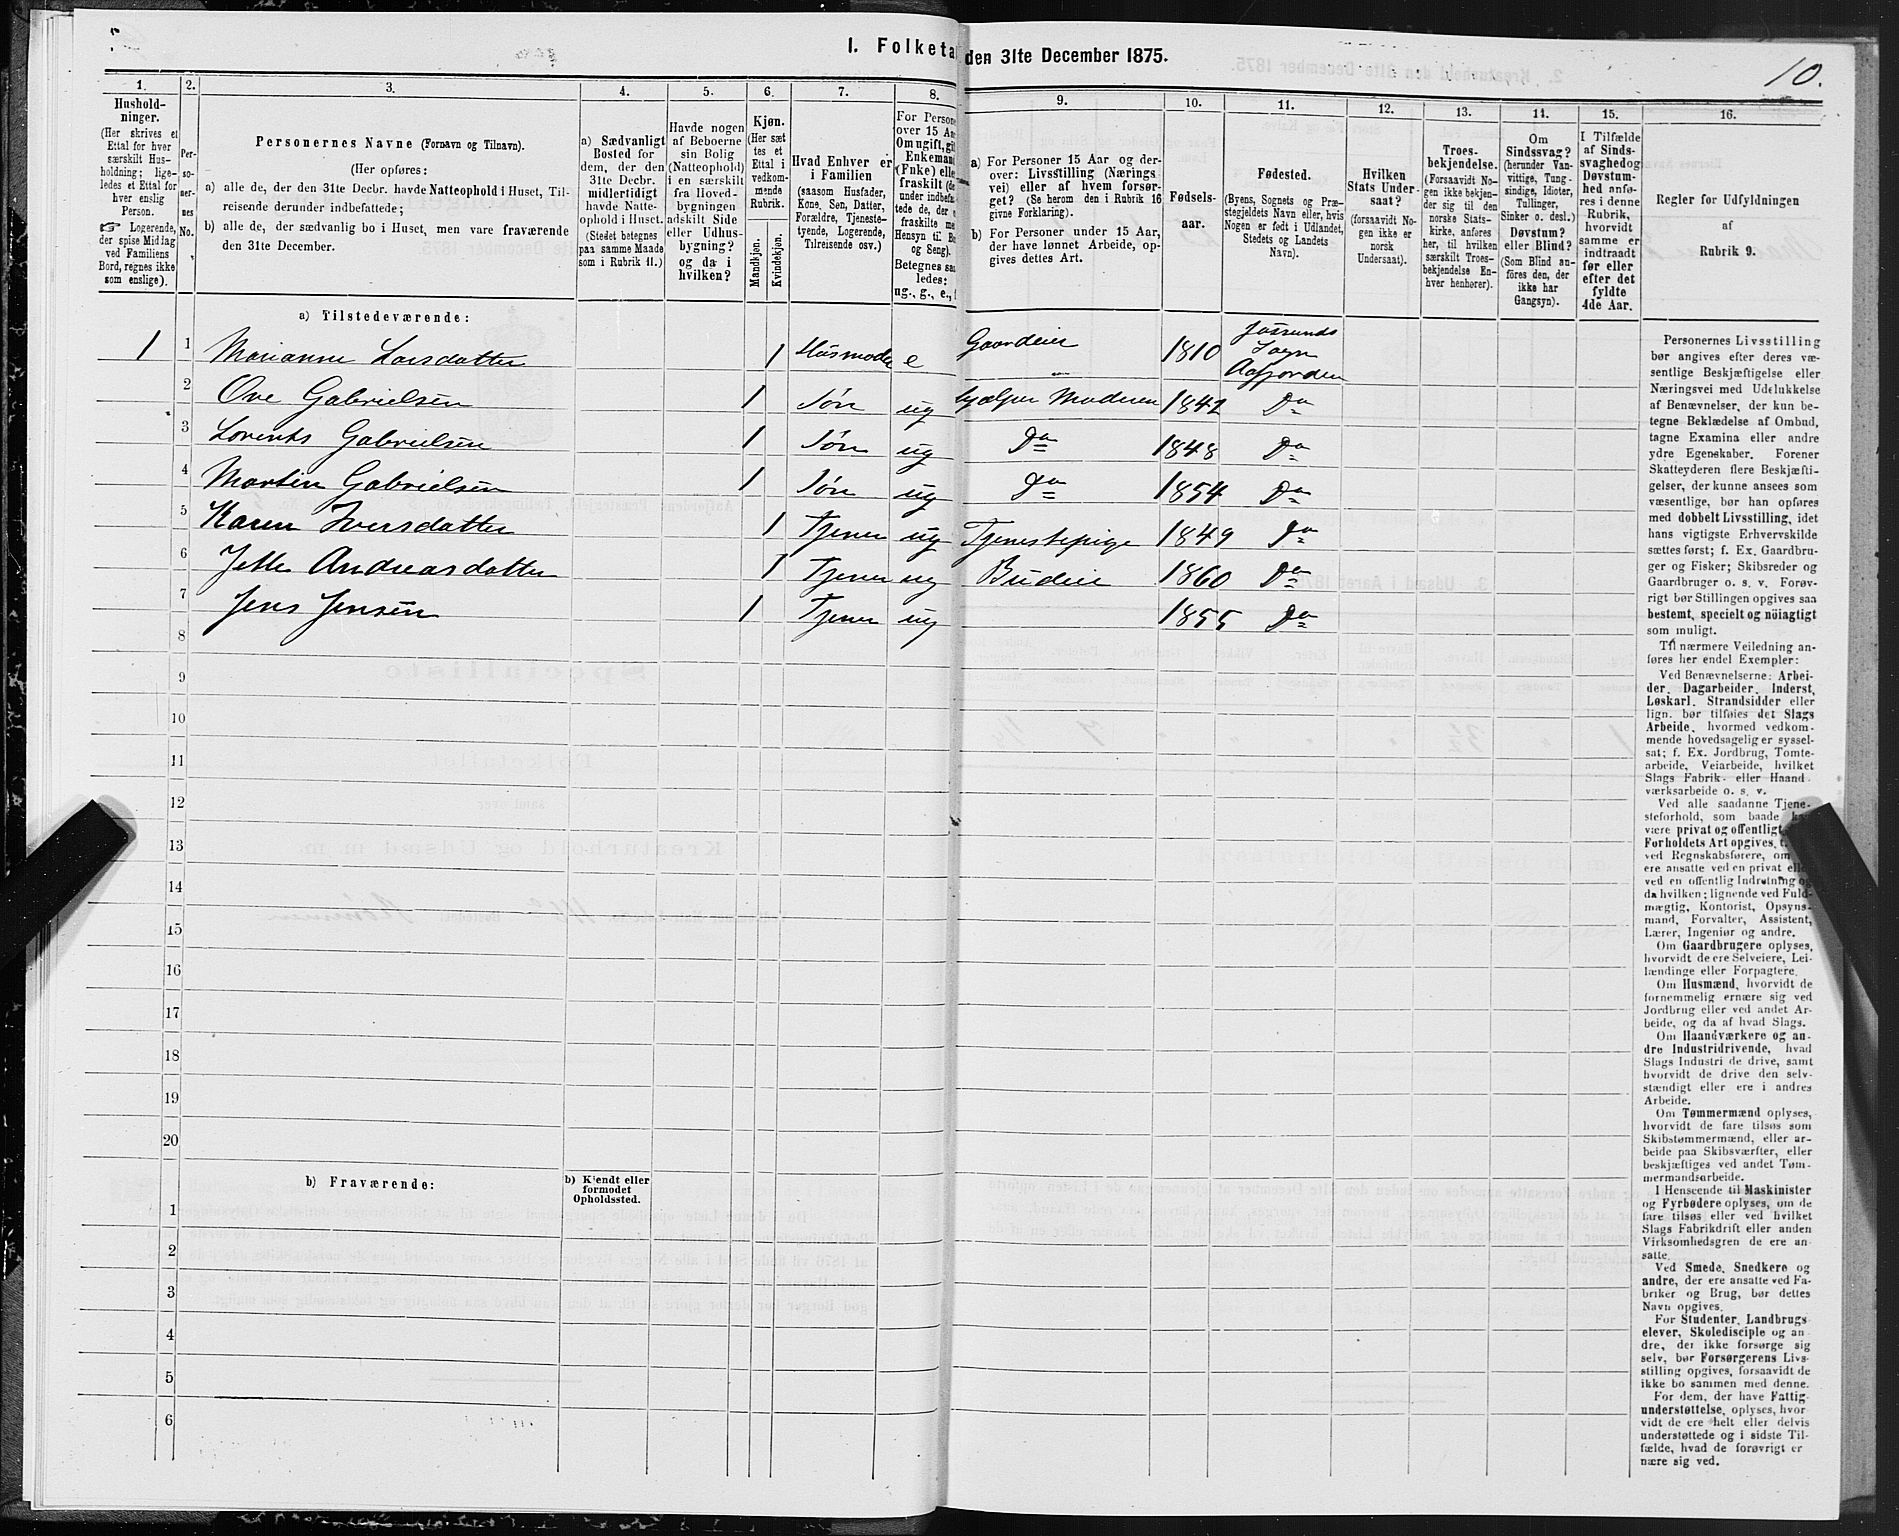 1. Folketal den 31te December 1875.
10.
1.
Husholdninger.
(Her skrives et
Ettal for hver
særskilt Husholdning;
ligeledes et Ettal for
hver enslig
Person.
Logerende,
der spise Middag
ved Familiens
Bord, regnes ikke
som enslige).
2.
Personernes
No.
3.
Personernes Navne (Fornavn og Tilnavn).
(Her opføres:
a) alle de, der den 31te Decbr. havde Natteophold i Huset, Tilreisende derunder indbefattede;
b) alle de, der sædvanlig bo i Huset, men vare fraværende
den 31te December.
4.
a) Sædvanligt
Bosted for
dem, der den
31te Decbr.
midlertidigt
havde Natteophold i Huset.
(Stedet betegnes
paa samme Maade
som i Rubrik 11.)
5.
Havde nogen
af Beboerne
sin Bolig
(Natteophold)
i en særskilt
fra Hovedbygningen
adskilt Side
eller Udhusbygning?
og da i
hvilken?
6.
Kjøn.
(Her sættes et
Ettal i
vedkommende
Rubrik.)
Mandkjøn.
Kvindekjøn.
7.
Hvad Enhver er
i Familien
(saasom Husfader,
Kone, Søn, Datter,
Forældre, Tjenestetyende, Logerende,
Tilreisende osv.)
8.
For Persone
over 15 Aa
Om ugift, gif
Enkemand
(Enke) elle
fraskilt (de
under indbefattede de, der
fraskilte me
Hensyn til Bo
og Seng).
Betegnes saaledes:
ug., g., e., f
9.
a) For Personer 15 Aar og derover: Livsstilling (Næringsvei) eller af hvem forsørget? (Se herom den i Rubrik 16
givne Forklaring).
b) For Personer under 15 Aar,
der have lønnet Arbeide, opgives dettes Art.
10.
Fødselsaar.
11.
Fødested.
(Byens, Sognets og Præstegjeldets Navn eller, hvis
Nogen er født i Udlandet,
Stedets og Landets
Navn).
12.
Hvilken
Stats Undersaat?
(forsaavidt Nogen ikke er
norsk
Undersaat).
13.
Troesbekjendelse.
(Forsaavidt Nogen ikke bekjender sig til den
norske Statskirke, anføres
her, til hvilken
særskilt Troesbekjendelse Enhver henhører).
14.
Om
Sindssvag?
(herunder Vanvittige, Tungsindige, Idioter,
Tullinger,
Sinker o. desl.)
Døvstum?
eller Blind?
(Som Blind anføres den, der
ikke har
Gangsyn).
15.
I Tilfælde
af Sindssvaghed og
Døvstumhed anføres i denne
Rubrik,
hvorvidt
samme er
indtraadt
før eller
efter det
fyldte
4de Aar.
16.
Regler for Udfyldningen
af
Rubrik 9.
a) Tilstedeværende:
1 1 Marianne Larsdatter 1 Husmoder e Gaardeier 1810 Jøssunds Sogn Aafjorden
2 Ove Gabrielsen 1 Søn ug hjælper Moderen 1842 Do
3 Lorents Gabrielsen 1 Søn ug Do 1848 Do
4 Martin Gabrielsen 1 Søn ug Do 1854 Do
5 Karen Iversdatter 1 Tjener ug Tjenestepige 1849 Do
6 Jette Andreasdatter 1 Tjener ug Budeie 1860 Do
7 Jens Jensen 1 Tjener ug 1855 Do
8
9
10
11
12
13
14
15
16
17
18
19
20
b) Fraværende:
b) Kjendt eller
formodet
Opholdssted.
1
2
3
4
5
6
Personernes Livsstilling
bør angives efter deres væsentlige Beskjæftigelse eller
Næringsvei med Udelukkelse
af Benævnelser, der kun betegne Beklædelse af Ombud,
tagne Examina eller andre
ydre Egenskaber. Forener
Skatteyderen flere Beskjæftigelser, der kunne ansees som
væsentlige, bør han opføres
med dobbelt Livsstilling, idet
hans vigtigste Erhvervskilde
sættes først; f. Ex. Gaardbruger og Fisker; Skibsreder og
Gaardbruger o. s. v. Forøvrigt bør Stillingen opgives saa
bestemt, specielt og nöiagtigt
som muligt.
Til nærmere Veiledning anføres her endel Exempler:
Ved Benævnelserne: Arbeider, Dagarbeider, Inderst,
Løskarl, Strandsidder eller
lign. bør tilføies det Slags
Arbeide, hvormed vedkommende hovedsagelig er sysselsat; f. Ex. Jordbrug, Tomtearbeide, Veiarbeide, hvilket
Slags Fabrik- eller Haandværksarbeide o. s. v.
Ved alle saadanne Tjenesteforhold, som baade
være privat og offentligt,
Forholdets Art opgives,
ved Regnskabsførere, om
ere ansatte ved en privat eller
ved en offentlig Indretning og
da hvilken; lignende ved Fuldmægtig, Kontorist, Opsynsmand, Forvalter, Assistent,
Lærer, Ingeniør og andre.
Om Gaardbrugere oplyses,
hvorvidt de ere Selveiere, Leilændinge eller Forpagtere.
Om Husmænd, hvorvidt de
fornemmelig ernære sig ved
Jordbrug eller ved andet Arbeide, og da af hvad Slags.
Om Haandværkere og andre Industridrivende, hvad
Slags Industri de drive, samt
hvorvidt de drive den selvstændigt eller ere i andres
Arbeide.
Om Tømmermænd oplyses,
hvorvidt de fare tilsøs som
Skibstømmermænd, eller arbeide paa Skibsværfter, eller
beskjæftiges ved andet Tømmermandsarbeide.
I Henseende til Maskinister
og Fyrbødere oplyses, om de
fare tilsøs eller ved hvilket
Slags Fabrikdrift eller anden
Virksomhedsgren de ere ansatte.
Ved Smede, Snedkere og
andre, der ere ansatte ved Fabriker og Brug, bør dettes
Navn opgives.
For Studenter, Landbrugselever, Skoledisciple og andre, der ikke forsørge sig
selv, bør Forsørgerens Livsstilling opgives, forsaavidt de
ikke bo sammen med denne.
For dem, der have Fattigunderstøttelse, oplyses, hvorvidt de ere helt eller delvis
understøttede og i sidste Tilfælde, hvad de forøvrigt er
nære sig ved.